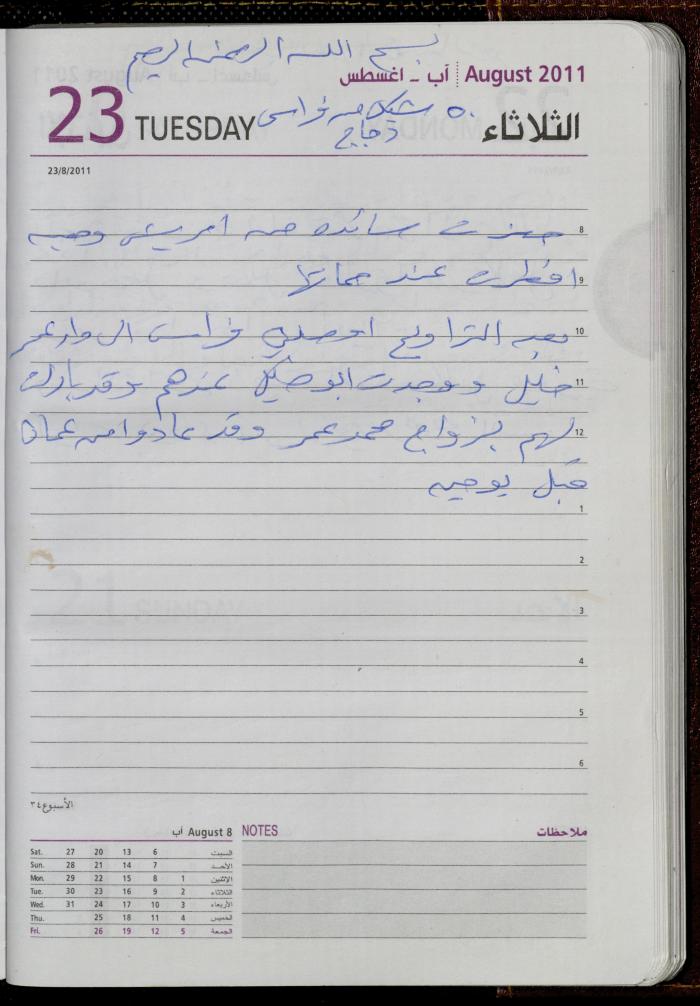 بسم الله الرحمن الرحيم
آب - اغسطس August 2011
23 TUESDAY الثلاثاء
٥٠ شيكل من فراس
دجاج
23/8/2011
8 حضرت سائده من امريكا وهي
9 افطرت عند حماتها
10 بعد التراويح اوصلني فراس الى دار عمر
11 خليل ووجدت ابو هيكل عندهم وقد بارك
12 لهم بزواج محمد عمر وقد عادوا من عمان
قبل يومين
1
2
3
4
5
6
الأسبوع ٣٤
August 8 آب
Sat. 27 20 13 6 السبت
Sun. 28 21 14 7 الأحد
Mon. 29 22 15 8 1 الإثنين
Tue. 30 23 16 9 2 الثلاثاء
Wed. 31 24 17 10 3 الأربعاء
Thu. 25 18 11 4 الخميس
Fri. 26 19 12 5 الجمعة
NOTES ملاحظات